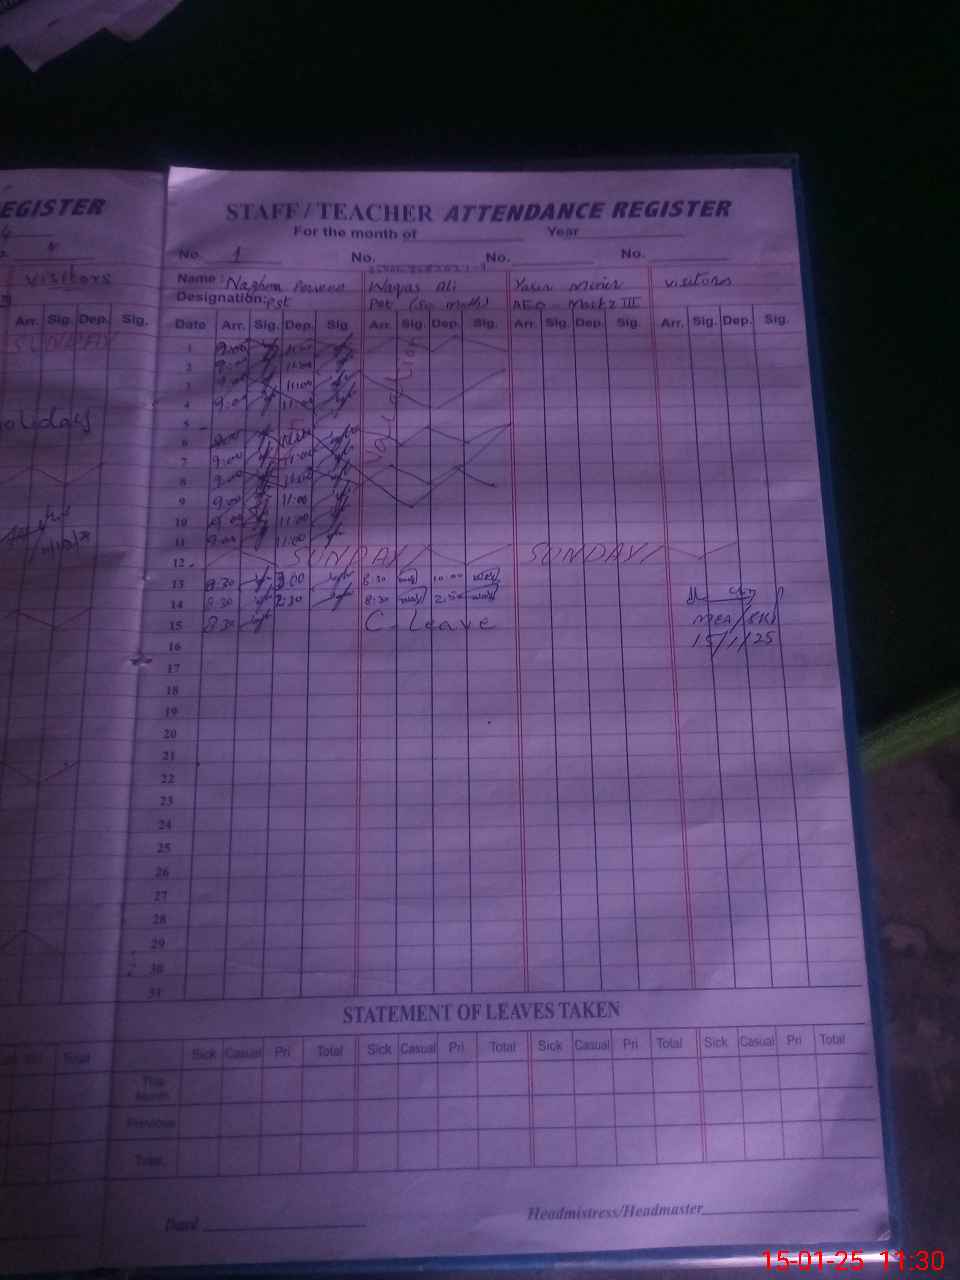 EGISTER
visitors
Arr. Sig. Dep. Sig.
SUNDAY
STAFF / TEACHER ATTENDANCE REGISTER
For the month of Year
No. 1 No. No. No.
Name: Nazhra Parveen Waqas Ali Yasir Munir visitors
Designation: PST AEO
Date Arr. Sig. Dep. Sig. Arr. Sig. Dep. Sig. Arr. Sig. Dep. Sig. Arr. Sig. Dep. Sig.
1 9:00 11:00
2 9:00 11:00
3 9:00 11:00
4 9:00 11:00
5
6 9:00 11:00
7 9:00 11:00
8 9:00 11:00
9 9:00 11:00
10 9:00 11:00
11 9:00 11:00
Vacation
12 SUNDAY SUNDAY
13 8:30 8:30
14 8:30 2:30 8:30
15 8:30 C - Leave
MEA
15/1/25
16
17
18
19
20
21
22
23
24
25
26
27
28
29
30
31
STATEMENT OF LEAVES TAKEN
Sick Casual Pri Total Sick Casual Pri Total Sick Casual Pri Total Sick Casual Pri Total
This
Month
Previous
Total
Dated
Headmistress/Headmaster
15-01-25 11:30